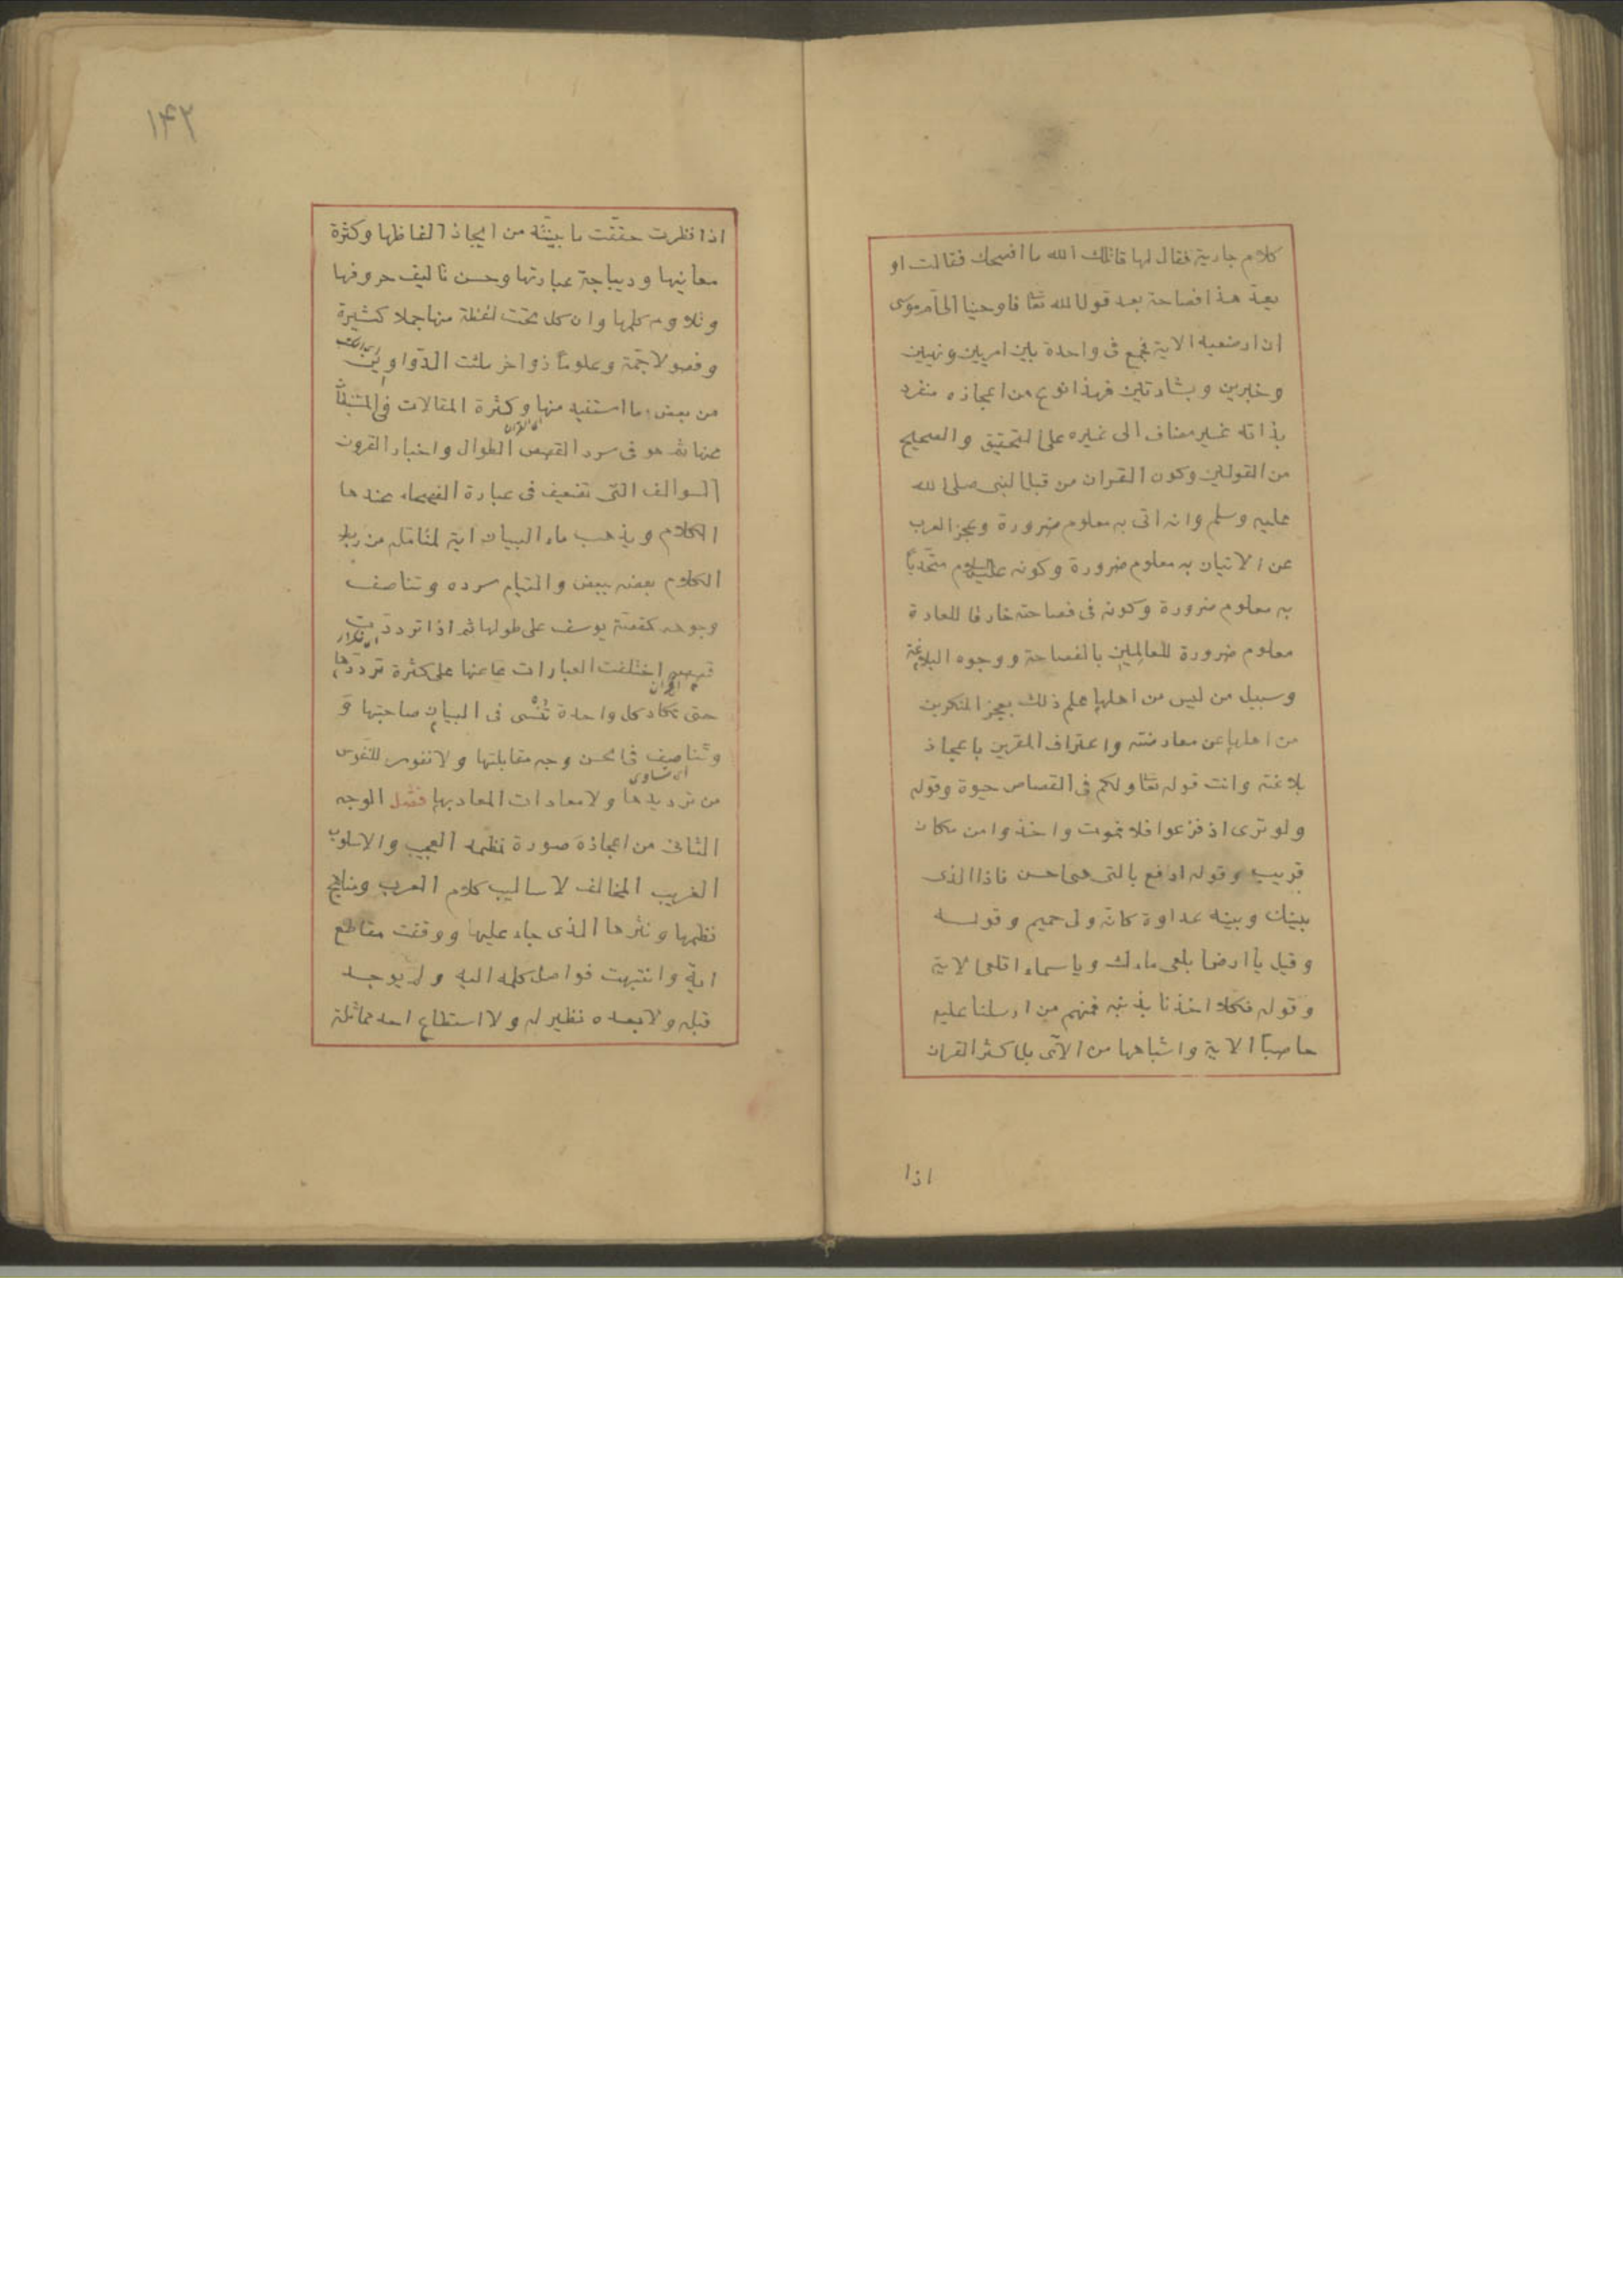 كلام جارية فقال لها قاتلك الله ما افصحك فقالت او
يعدّ هذا فصاحة بعد قول الله تعا فاوحينا الى ام موسى
ان ارضعيه الاية فجمع فى واحدة بين امريين ونهيين
وخبرين وبشارتين فهذا نوع من اعجازه منفرد
بذاته غير مضاف الى غيره على التحقيق والصحيح
من القولين وكون القران من قبل النبى صلى الله
عليه وسلم وانه اتى به معلوم ضرورة وعجز العرب
عن الاتيان به معلوم ضرورة وكونه عليه السلام متحدّيًا
به معلوم ضرورة وكونه فى فصاحته خارقا للعادة
معلوم ضرورة للعالِمِينِ بالفصاحة ووجوه البلاغة
وسبيل من ليس من اهلها علم ذلك بعجز المنكرين
من اهلها عن معارضته واعتراف المقرين باعجاز
بلاغته وانت قوله تعا ولكم فى القصاص حيوة وقوله
ولو ترى اذ فزعوا فلا فوت واخذوا من مكان
قريب وقوله ادفع بالتى هى احسن فاذا الذى
بينك وبينه عداوة كانه ولى حميم وقوله
وقيل يا ارض ابلعى ماءك وياسماء اقلعى الاية
وقوله فكلا اخذنا بذنبه فمنهم من ارسلنا عليه
حاصبًا الاية واشباهها من الآى بل اكثر القران
اذا
١٤٢
اذا نظرت حققت ما بينته من ايجاز الفاظها وكثرة
معانيها وديباجة عبارتها وحسن تاليف حروفها
وتلاوم كلمها وان كل تحت لفظة منها جملا كثيرة
وفصولا جمّة وعلومًا ذواخر ملئت الدّواوين
اى الكتب
من بعض ما استفيد منها وكثرة المقالات فى المستنبطات
عنها ثم هو فى سرد القصص الطوال واخبار القرون
اى القران
السوالف التى تضعيف فى عبارة الفصحاء عندها
الكلام ويذهب ماء البيان اية لمتامّله من ربط
الكلام بعضه ببعض والتيام سرده وتناصف
وجوهه كقصّة يوسف على طولها ثم اذا ترددت
اى تكرار
قصصه اختلفت العبارات عنها على كثرة تردّدها
القران
حتى تكاد كل واحدة تنسّى فى البيان صاحبتها و
وتناصف فى الحسن وجه مقابلتها ولا نفور للنفوس
اى تساوى
من ترديدها ولا معادات المعاد بها فصل الوجه
الثانى من اعجازه صورة نظمه العجيب والاسلوب
الغريب المخالف لاساليب كلام العرب ومناهج
نظمها ونثرها الذى جاء عليها ووقفت مقاطع
ايةٍ وانتهت فواصل كلمه اليه ولم يوجد
قبله ولا بعده نظير له ولا استطاع احد مماثلة